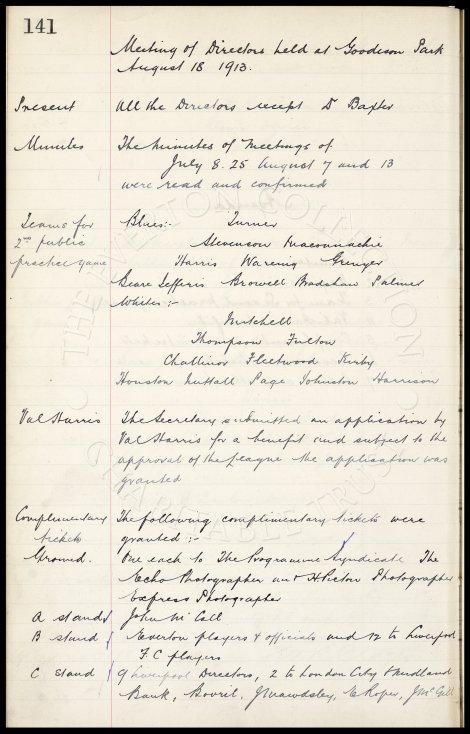 141
Meeting of Directors held at Goodison Park
August 18 1913.
Present All the Directors except Dr Baxter
Minutes The Minutes of Meetings of
July 8. 25 August 7 and 13
were read and confirmed
Teams for Blues:- Turner
2nd public Stevenson Maconnachie
practice game Harris Wareing Grenyer
Beare Jefferis Browell Bradshaw Palmer
Whites:-
Mitchell
Thompson Fulton
Challinor Fleetwood Kirby
Houston Nuttall Page Johnston Harrison
Val Harris The Secretary submitted an application by
Val Harris for a benefit and subject to the
approval of the League the application was
granted
Complimentary The following complimentary tickets were
tickets granted:-
Ground. One each to The Programme Syndicate The
Echo Photographer and H Picton Photographer
Express Photographer
A stands John McCall
B stand Everton players & officials and 12 to Liverpool
F.C players
C stand 9 Liverpool Directors, 2 to London City & Midland
Bank, Bovril, J Mawdsley, E Roper, J McCall
THE EVERTON COLLECTION
CHARITABLE TRUST